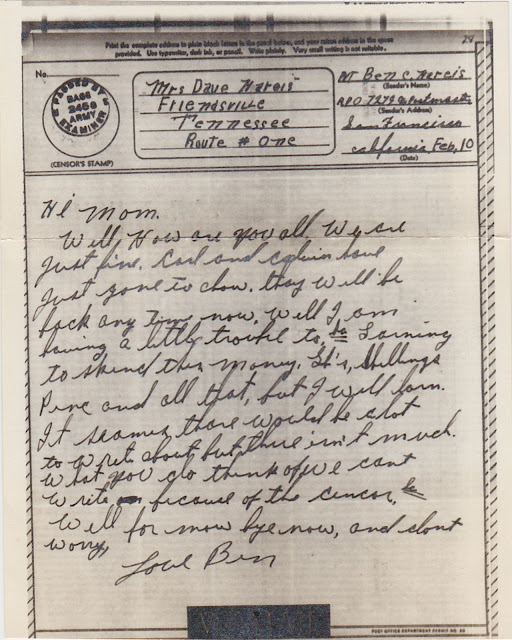 Print the complete address in plain block letters in the panel below, and your return address in the space
provided. Use typewriter, dark ink, or pencil. Write plainly. Very small writing is not suitable.
29
No.
PASSED BY
BASE
2459
ARMY
EXAMINER
(CENSOR'S STAMP)
Mrs Dave Nareis
Friendsville
Tennessee
Route # One
Pvt Ben C. Nareis
(Sender's Name)
APO 7279 Postmaster
(Sender's Address)
San Francisco
California Feb, 10
(Date)
Hi Mom.
Well How are you all. We are
just fine. Carl and Calvin have
just gone to chow. they will be
back any Time now. Well I am
having a little trouble to, Larning
to spend this money. It's, Shillings
Pence and all that, but I will larn.
It seames there would be alot
to write about but there isn't much.
What you do think of we cant
Write because of the cencor.
Well for now bye now, and dont
worry,
Love Ben
V···-MAIL
POST OFFICE DEPARTMENT PERMIT NO.